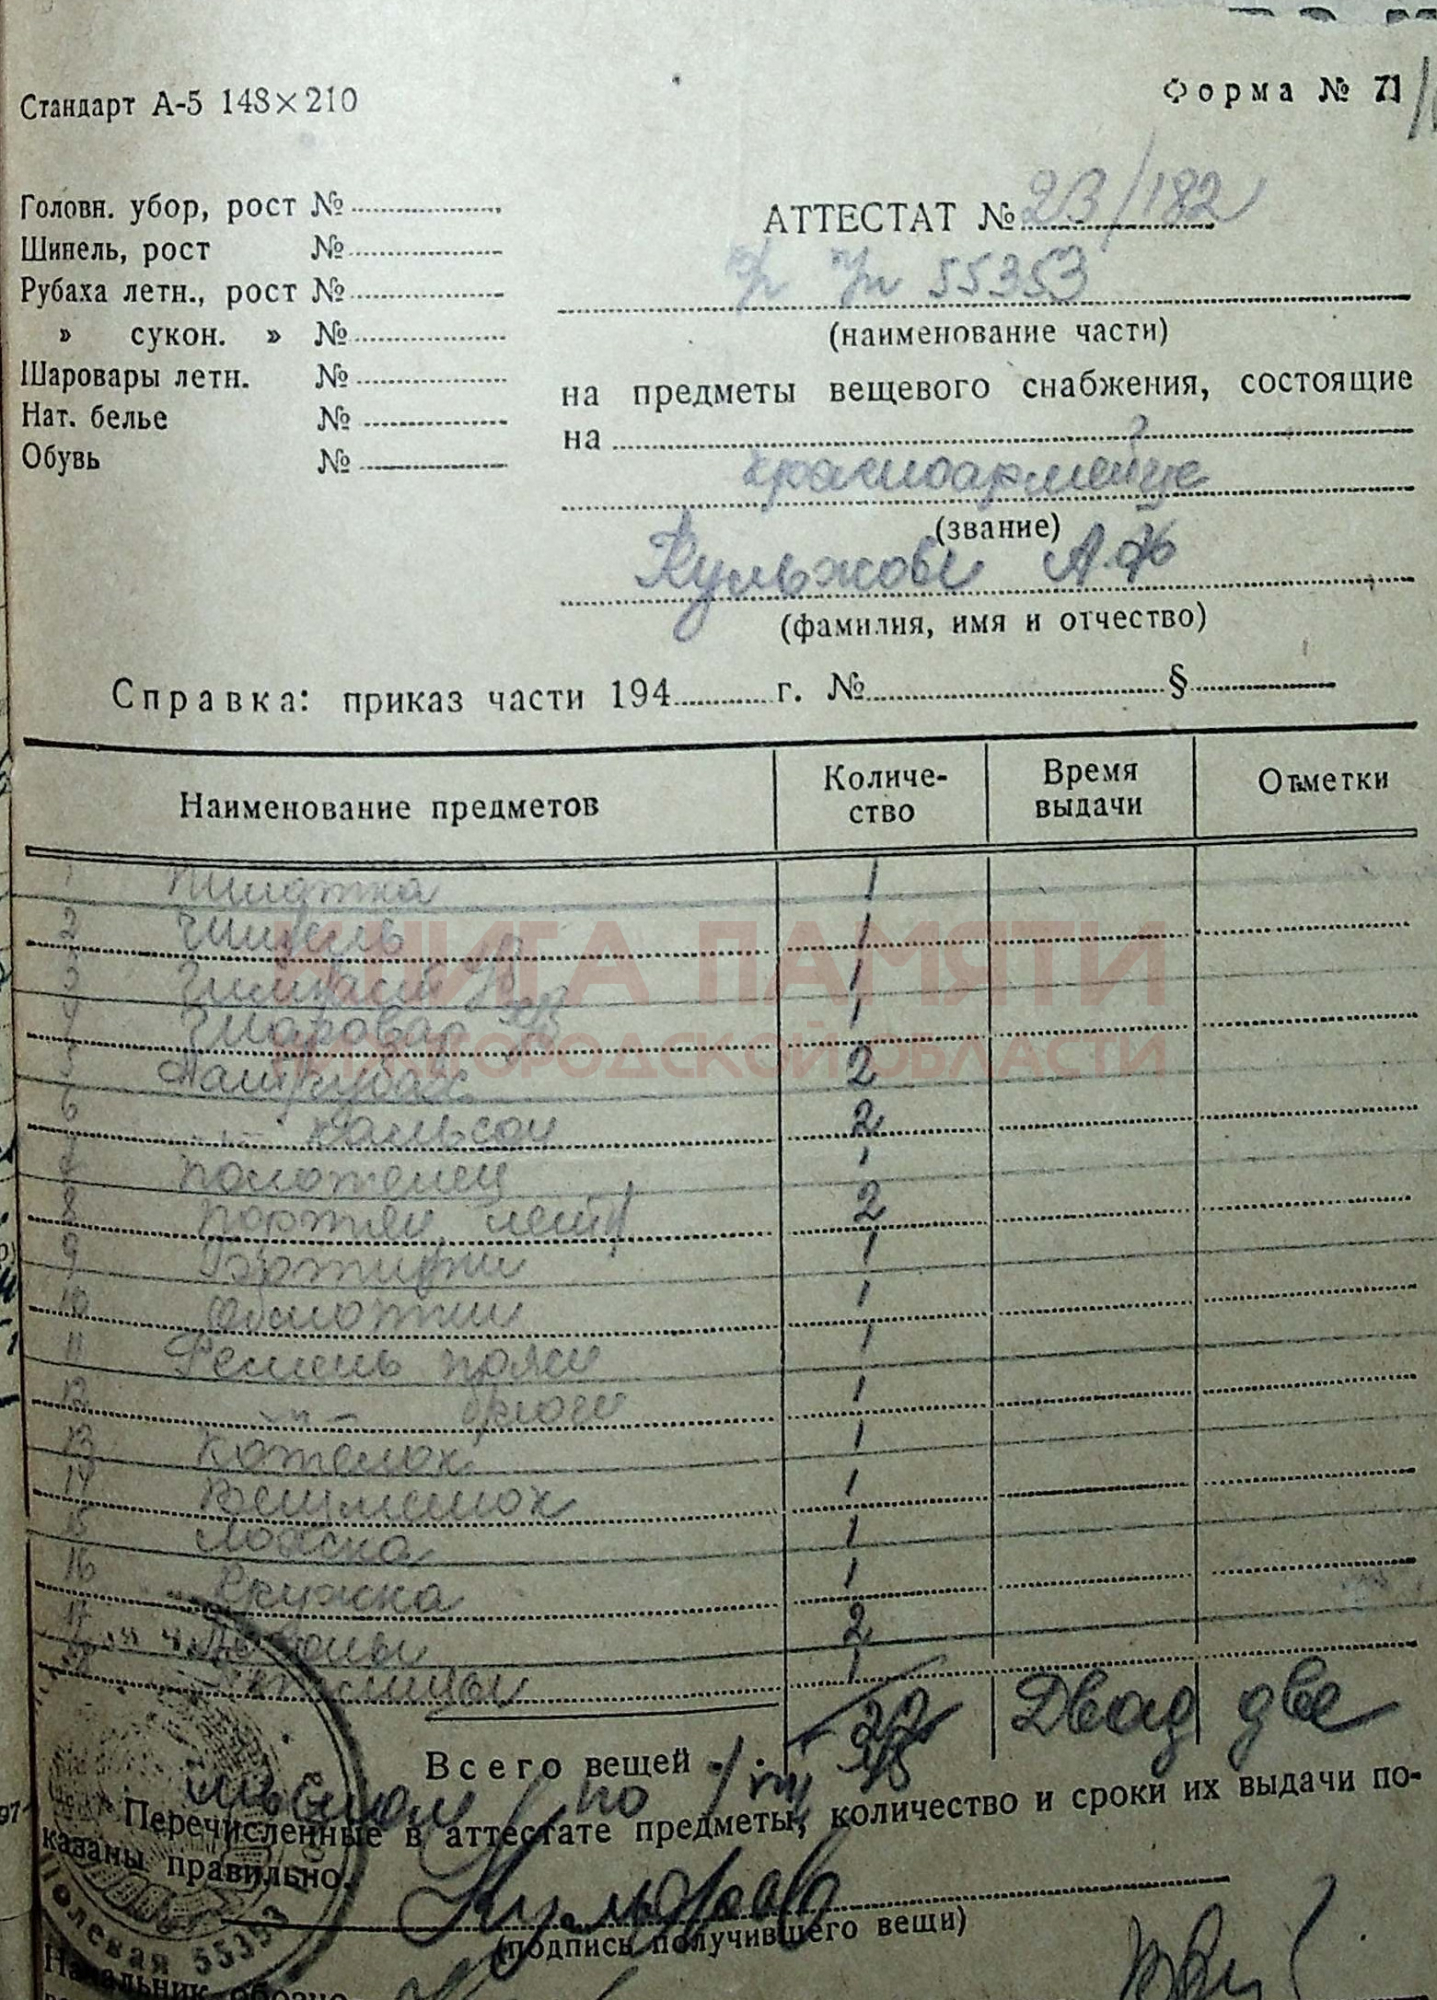 Стандарт А-5 148×210
Форма № 71
Головн. убор, рост №
Шинель, рост №
Рубаха летн., рост №
» сукон. » №
Шаровары летн. №
Нат. белье №
Обувь №
АТТЕСТАТ № 23/182
55353
(наименование части)
на предметы вещевого снабжения, состоящие
на
красноармейце
(звание)
А.
(фамилия, имя и отчество)
Справка: приказ части 194 г. № §
Наименование предметов
Количе-
ство
Время
выдачи
Отметки
1 Пилотка 1
2 Шинель 1
3 Гимнаст 1
4 Шаровар 1
5 Нат рубах 2
6 -"- кальсон 2
7 полотенец 1
8 портян летн 2
9 Ботинки 1
10 Обмотки 1
11 Ремень поясн 1
12 -"- брючн 1
13 Котелок 1
14 Вещмешок 1
15 Ложка 1
16 Кружка 1
17 2
1
КНИГА ПАМЯТИ
НИЖЕГОРОДСКОЙ ОБЛАСТИ
Всего вещей 22 Двад две
Перечисленные в аттестате предметы, количество и сроки их выдачи по-
казаны правильно.
(подпись получившего вещи)
Полевая 55353
Начальник обозно-